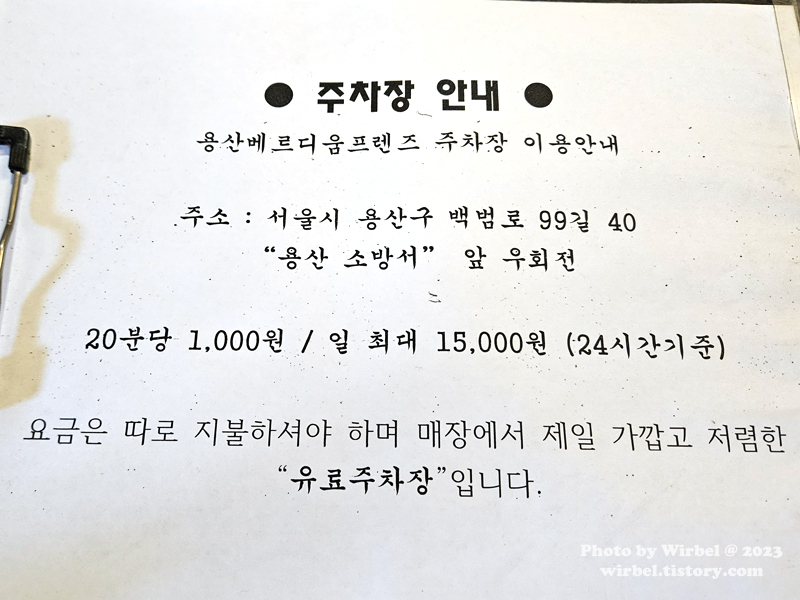 ● 주차장 안내 ●
용산베르디움프렌즈 주차장 이용안내
주소 : 서울시 용산구 백범로 99길 40
“용산 소방서” 앞 우회전
20분당 1,000원 / 일 최대 15,000원 (24시간기준)
요금은 따로 지불하셔야 하며 매장에서 제일 가깝고 저렴한
“유료주차장”입니다.
Photo by Wirbel @ 2023
wirbel.tistory.com